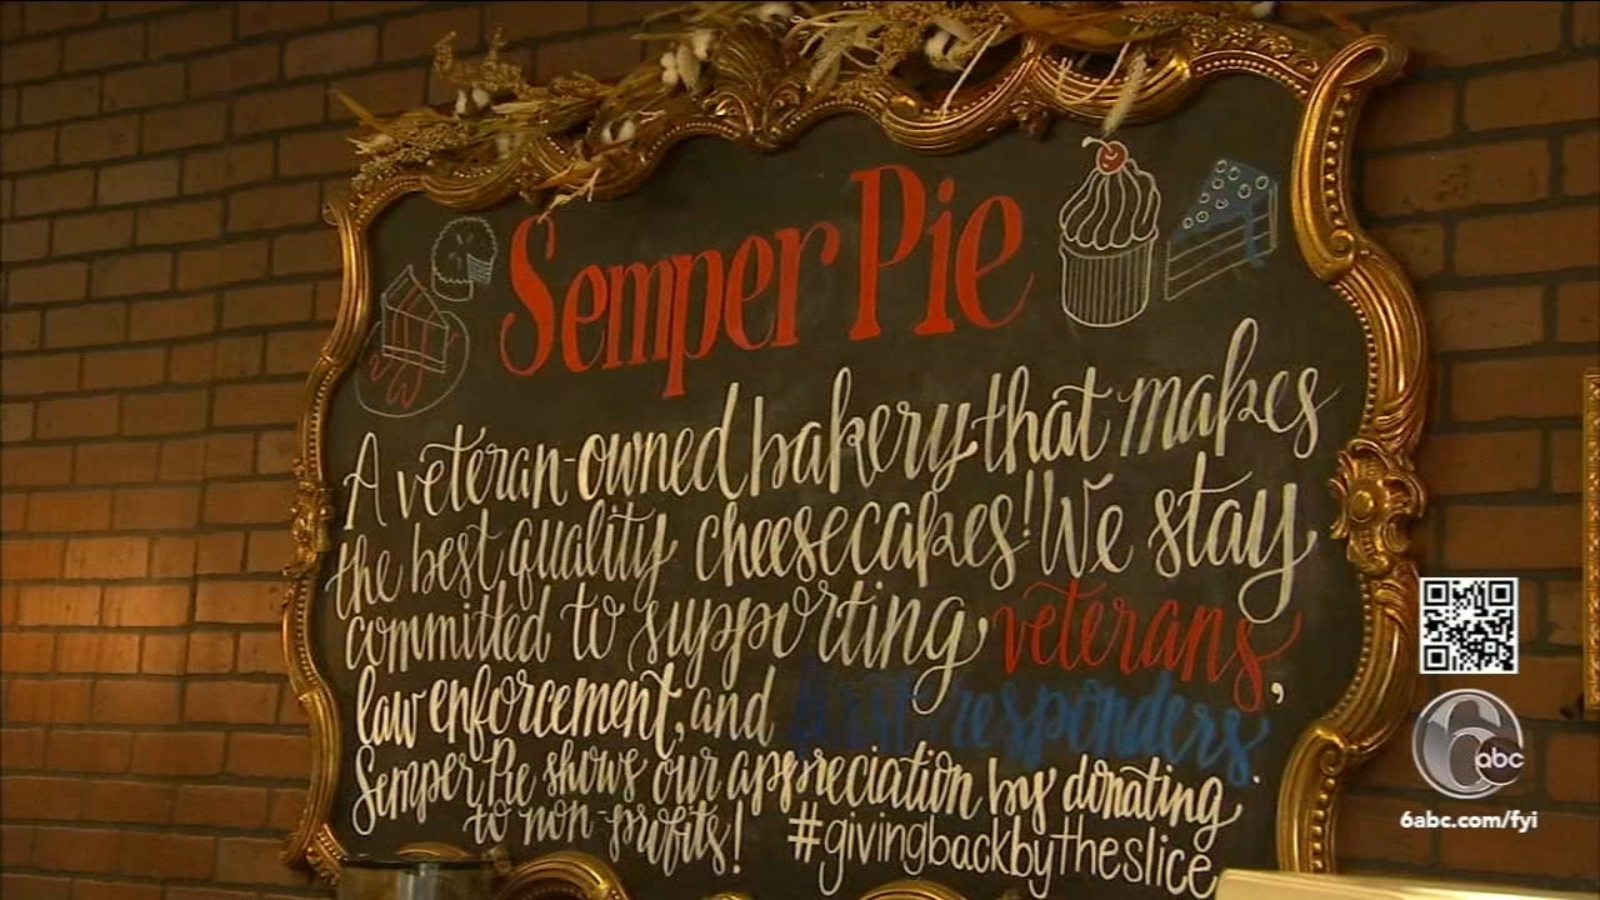 Semper Pie
A veteran-owned bakery that makes
the best quality cheesecakes! We stay
committed to supporting veterans,
law enforcement, and first responders.
Semper Pie shows our appreciation by donating
to non-profits! #givingbackbytheslice
6abc
6abc.com/fyi